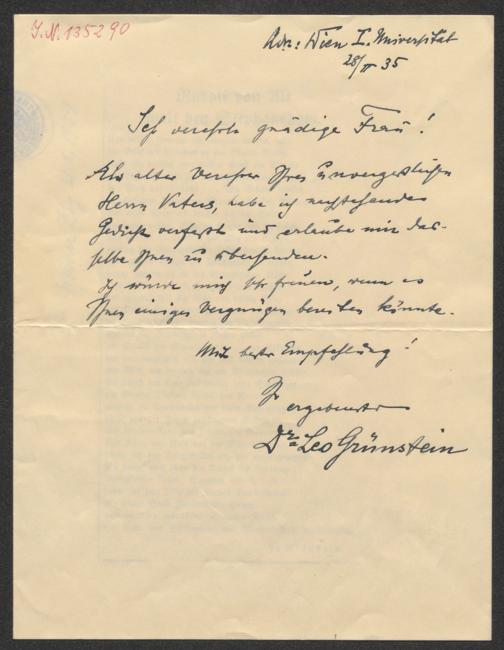 J.N. 135290
Adr.: Wien I. Universität
28/II 35
Sehr verehrte gnädige Frau!
Als alter Verehrer Ihres unvergeßlichen
Herrn Vaters, habe ich nachstehendes
Gedicht verfaßt und erlaube mir das-
selbe Ihnen zu übersenden.
Ich würde mich sehr freuen, wenn es
Ihnen einiges Vergnügen bereiten könnte.
Mit bester Empfehlung!
Ihr
ergebenster
Dr. Leo Grünstein